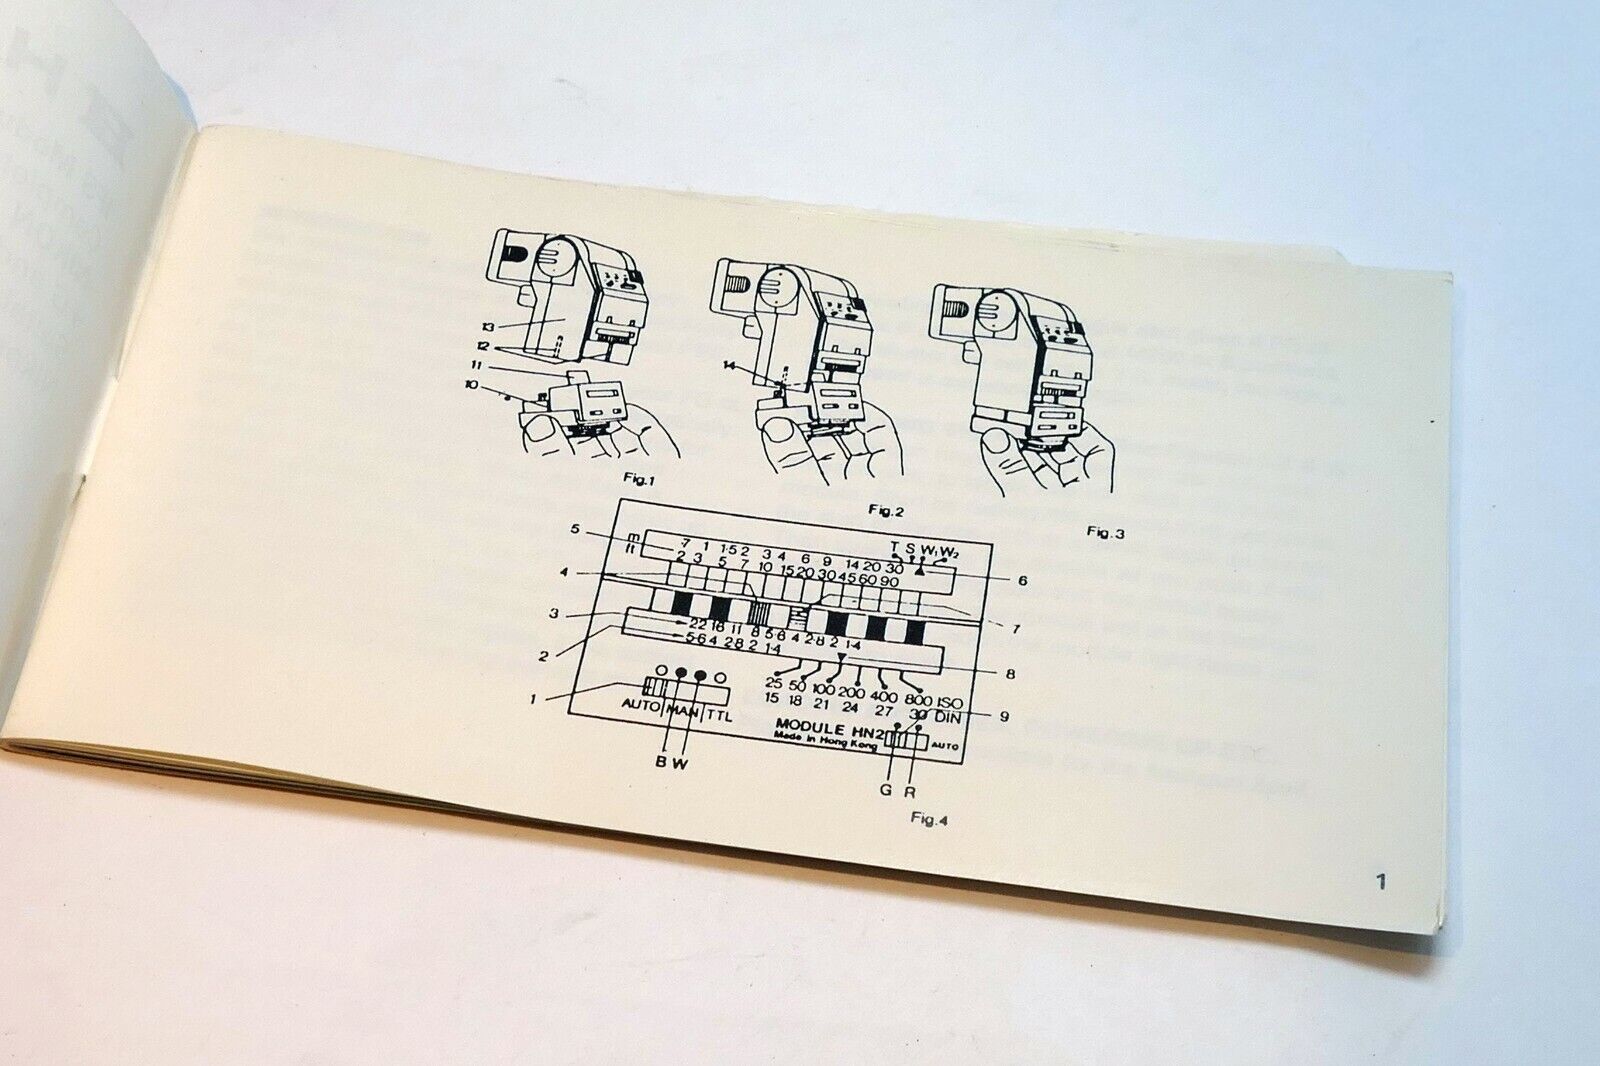 13
12
11
10
14
Fig.1
Fig.2
Fig.3
5
4
3
2
1
m .7 1 1·5 2 3 4 6 9 14 20 30
ft 2 3 5 7 10 15 20 30 45 60 90
T S W₁ W₂
6
7
8
9
22 16 11 8 5·6 4 2·8 2 1·4
5·6 4 2·8 2 1·4
25 50 100 200 400 800 ISO
15 18 21 24 27 30 DIN
AUTO MAN TTL
MODULE HN2
Made in Hong Kong
AUTO
B W
G R
Fig.4
1